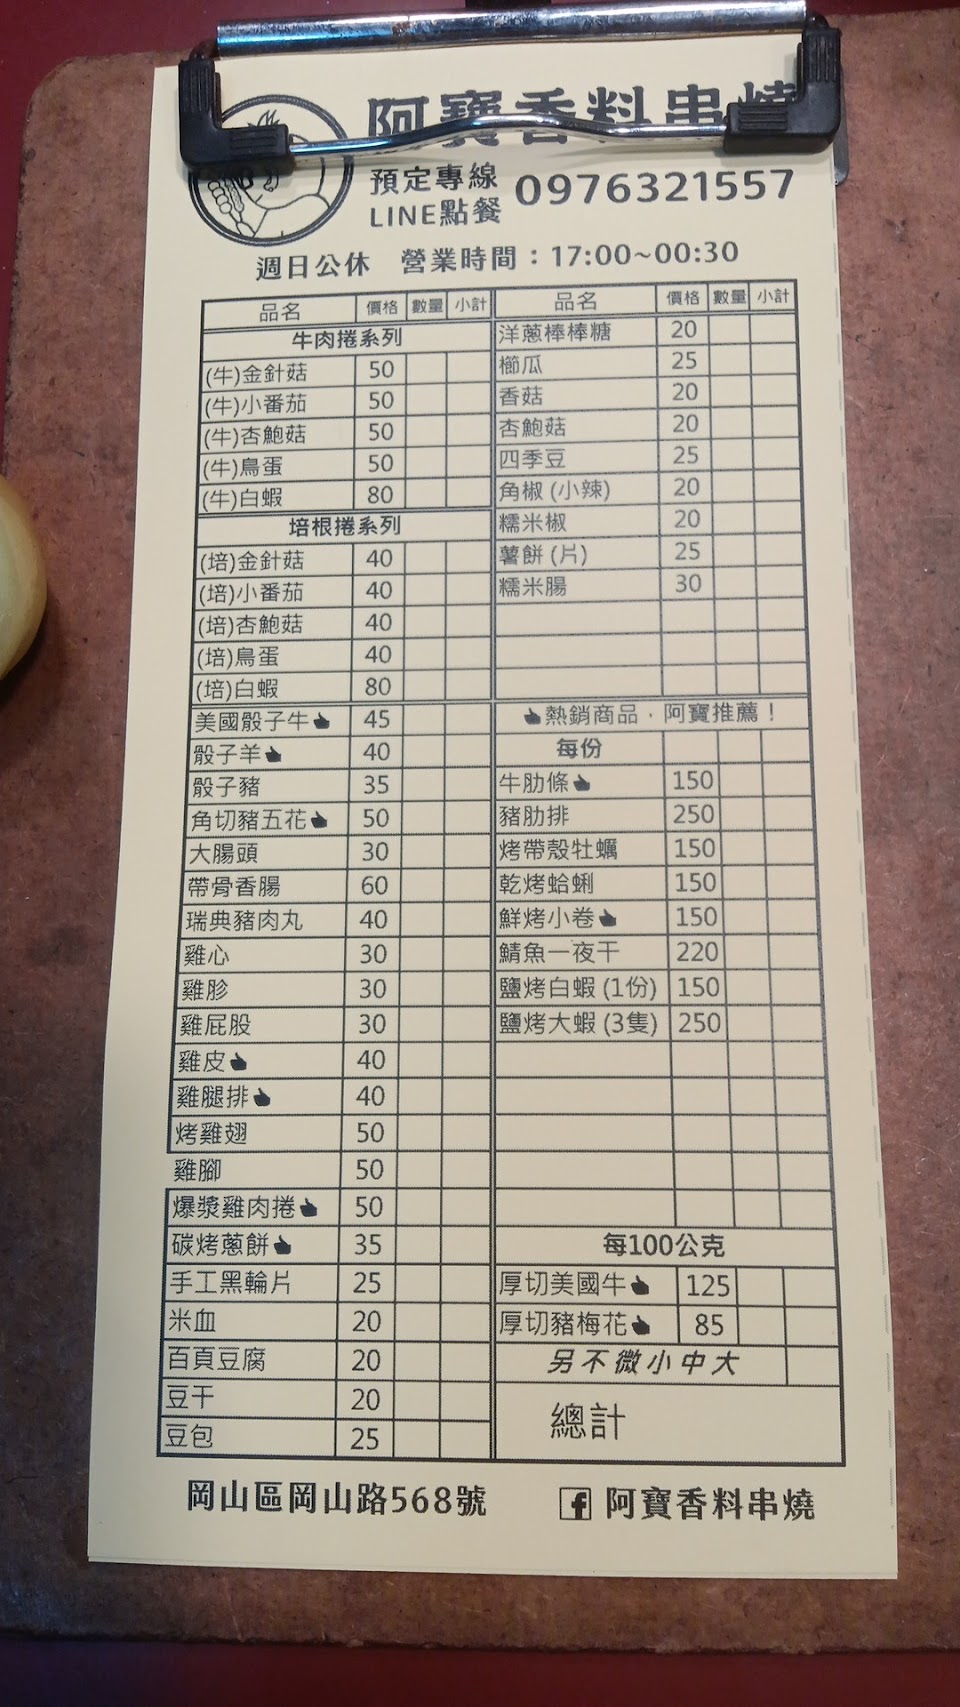 阿寶香料串燒
預定專線 0976321557
LINE點餐
週日公休 營業時間：17:00~00:30
品名 價格 數量 小計
牛肉捲系列
(牛)金針菇 50
(牛)小番茄 50
(牛)杏鮑菇 50
(牛)鳥蛋 50
(牛)白蝦 80
培根捲系列
(培)金針菇 40
(培)小番茄 40
(培)杏鮑菇 40
(培)鳥蛋 40
(培)白蝦 80
美國骰子牛 45
骰子羊 40
骰子豬 35
角切豬五花 50
大腸頭 30
帶骨香腸 60
瑞典豬肉丸 40
雞心 30
雞胗 30
雞屁股 30
雞皮 40
雞腿排 40
烤雞翅 50
雞腳 50
爆漿雞肉捲 50
碳烤蔥餅 35
手工黑輪片 25
米血 20
百頁豆腐 20
豆干 20
豆包 25
品名 價格 數量 小計
洋蔥棒棒糖 20
櫛瓜 25
香菇 20
杏鮑菇 20
四季豆 25
角椒 (小辣) 20
糯米椒 20
薯餅 (片) 25
糯米腸 30
熱銷商品．阿寶推薦！
每份
牛肋條 150
豬肋排 250
烤帶殼牡蠣 150
乾烤蛤蜊 150
鮮烤小卷 150
鯖魚一夜干 220
鹽烤白蝦 (1份) 150
鹽烤大蝦 (3隻) 250
每100公克
厚切美國牛 125
厚切豬梅花 85
另不微小中大
總計
岡山區岡山路568號 f 阿寶香料串燒